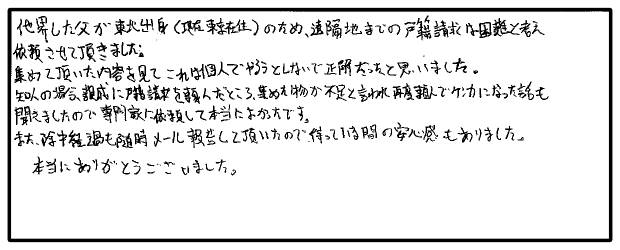 他界した父が東北出身(現在東京在住)のため、遠隔地までの戸籍請求は困難と考え
依頼させて頂きました。
集めて頂いた内容を見てこれは個人でやろうとしないで正解だったと思いました。
知人の場合、親戚に戸籍請求を頼んだところ、集めた物が不足と言われ再度頼んでケンカになった話も
聞きましたので専門家に依頼して本当によかったです。
また、途中経過も随時メール報告して頂いたので待っている間の安心感もありました。
本当にありがとうございました。